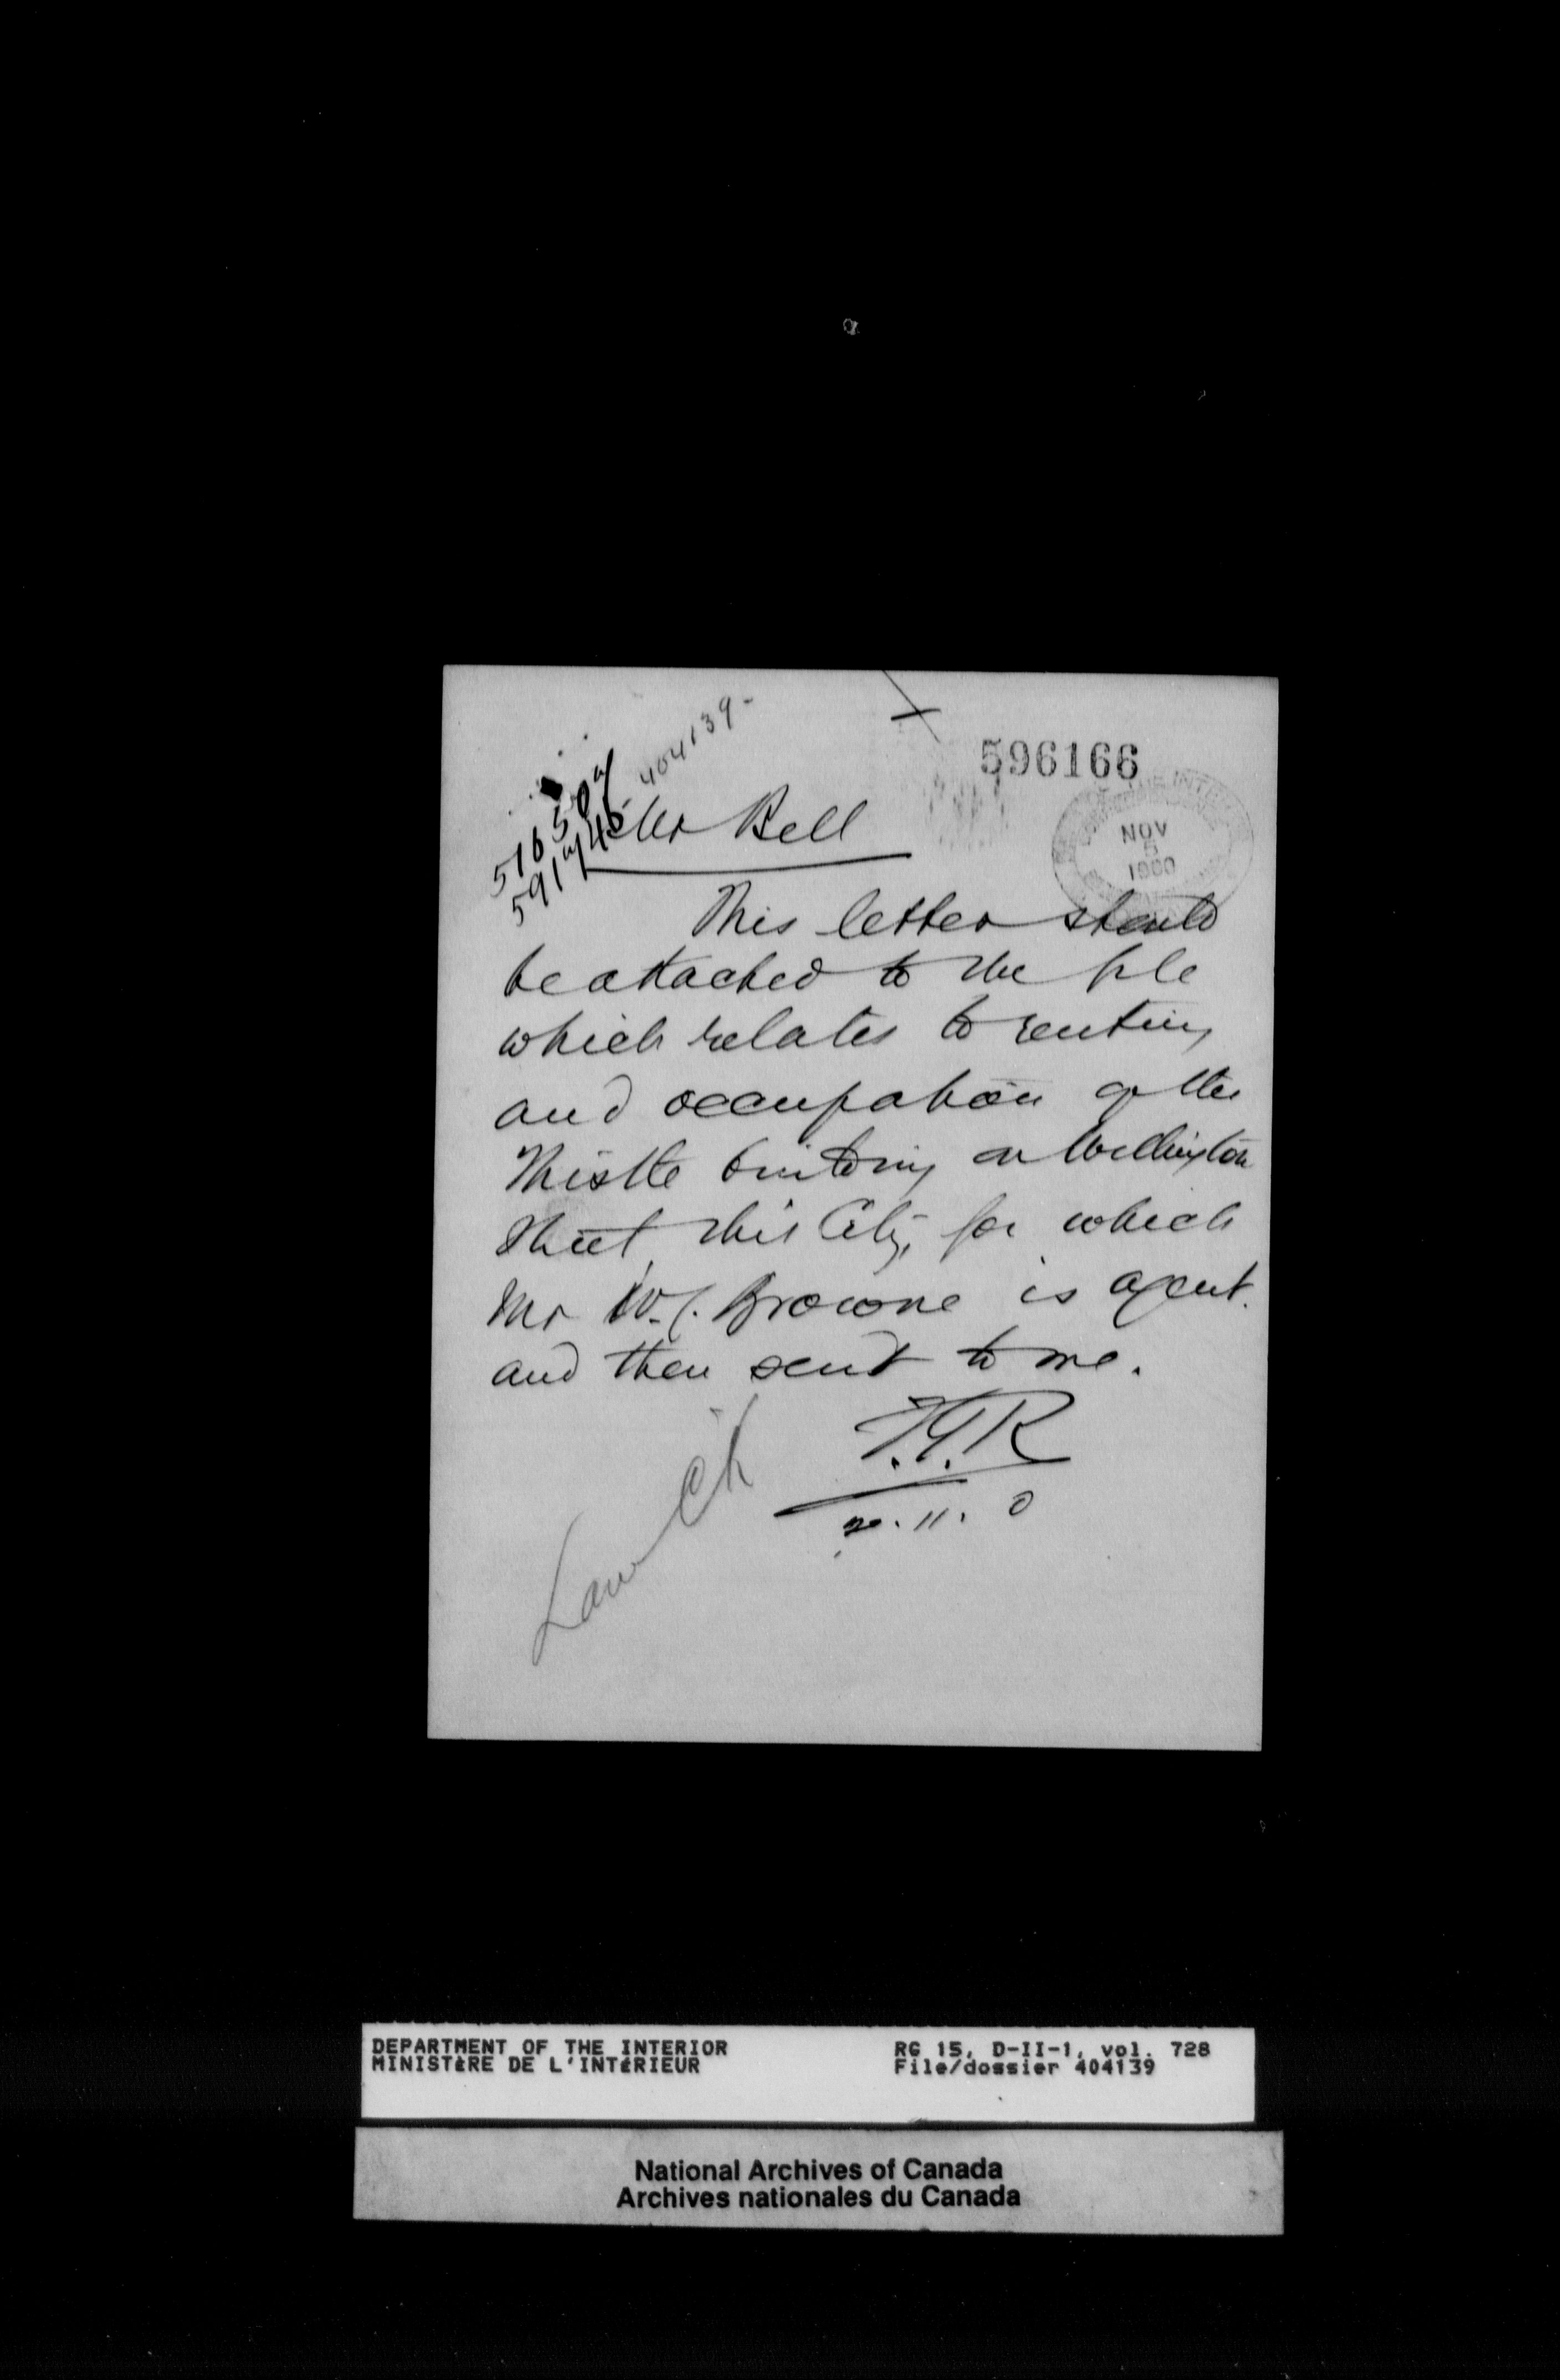 404139-
596166
NOV
5
1900
Mr Bell
This letter should
be attached to the file
which relates to renting
and occupation of the
Thistle building on Wellington
Street this City, for which
Mr W. Browne is agent.
and then send to me.
R
11. 0
Law Ch
DEPARTMENT OF THE INTERIOR
MINISTÈRE DE L'INTÉRIEUR
RG 15, D-II-1, vol. 728
File/dossier 404139
National Archives of Canada
Archives nationales du Canada